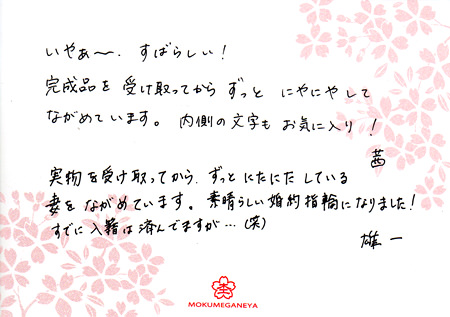 いやぁ〜、すばらしい!
完成品を受け取ってからずっとにやにやして
ながめています。内側の文字もお気に入り!
茜
実物を受け取ってから、ずっとにたにたしている
妻をながめています。素晴らしい婚約指輪になりました!
すでに入籍は済んでますが…(笑)
雄一
MOKUMEGANEYA